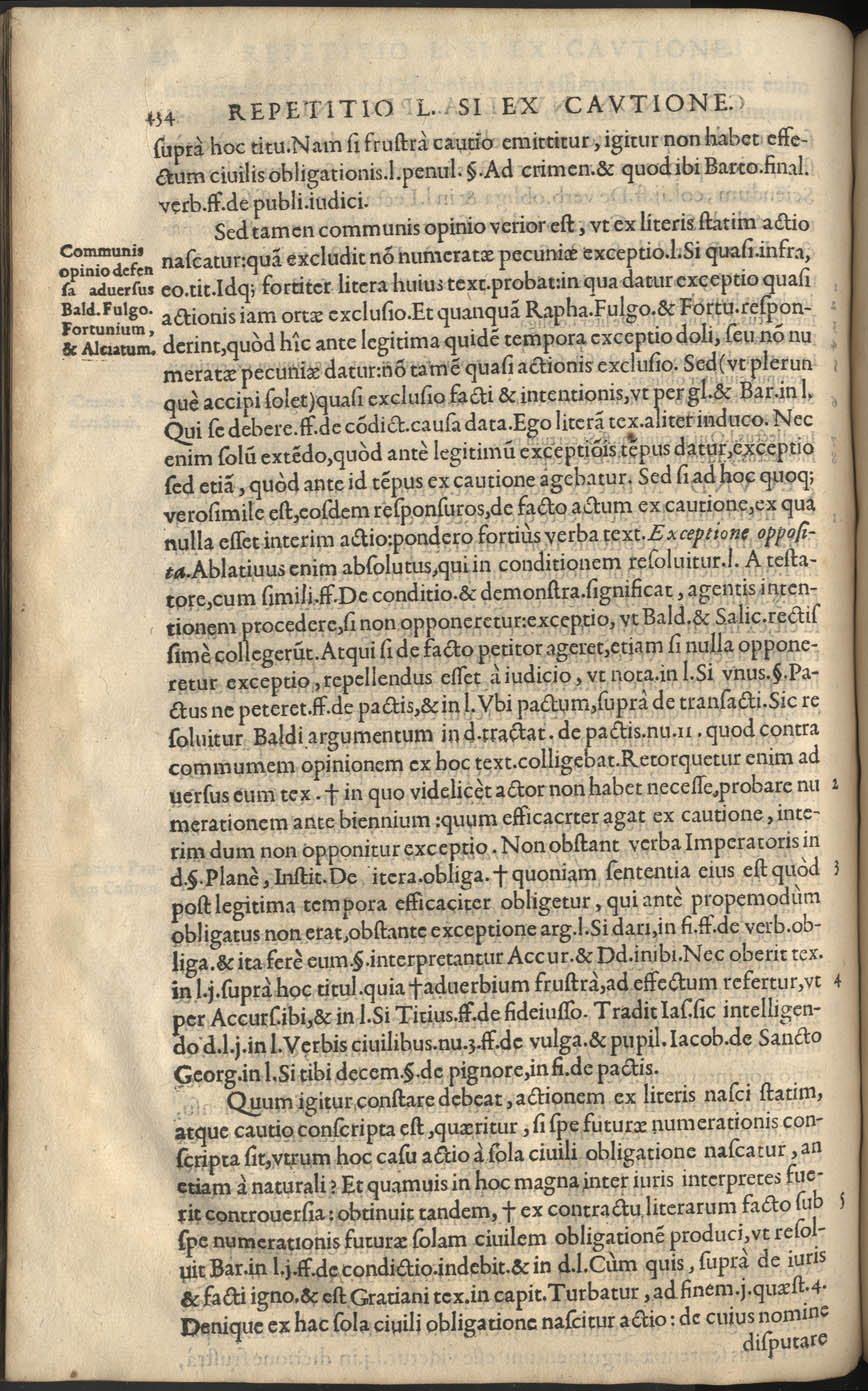 434 REPETITIO L. SI EX CAVTIONE.
ſuprà hoc titu.Nam ſi fruſtrà cautio emittitur, igitur non habet effe-
ctum ciuilis obligationis.l.penul. §.Ad crimen.& quod ibi Barto.final.
verb.ff.de publi.iudici.
Sed tamen communis opinio verior eſt, vt ex literis ſtatim actio
naſcatur:quã excludit nõ numeratæ pecuniæ exceptio.l.Si quaſi.infra,
eo.tit.Idq; fortiter litera huius text.probat:in qua datur exceptio quaſi
actionis iam ortæ excluſio.Et quanquã Rapha.Fulgo.& Fortu.reſpon-
derint,quòd hîc ante legitima quidẽ tempora exceptio doli, ſeu nõ nu
meratæ pecuniæ datur:nõ tamẽ quaſi actionis excluſio. Sed(vt plerun
què accipi ſolet)quaſi excluſio facti & intentionis,vt per gl.& Bar.in l.
Qui ſe debere.ff.de cõdict.cauſa data.Ego literã tex.aliter induco. Nec
enim ſolũ extẽdo,quòd antè legitimũ exceptiõis tẽpus datur,exceptio
ſed etiã, quòd ante id tẽpus ex cautione agebatur. Sed ſi ad hoc quoq;
veroſimile eſt,eoſdem reſponſuros,de facto actum ex cautione,ex qua
nulla eſſet interim actio:pondero fortiùs verba text.Exceptione oppoſi-
ta.Ablatiuus enim abſolutus,qui in conditionem reſoluitur.l. A teſta-
tore,cum ſimili.ff.De conditio.& demonſtra.ſignificat, agentis inten-
tionem procedere,ſi non opponeretur:exceptio, vt Bald.& Salic.rectiſ
ſimè collegerũt.Atqui ſi de facto petitor ageret,etiam ſi nulla oppone-
retur exceptio,repellendus eſſet à iudicio, vt nota.in l.Si vnus.§.Pa-
ctus ne peteret.ff.de pactis,& in l.Vbi pactum,ſuprà de tranſacti.Sic re
ſoluitur Baldi argumentum in d.tractat. de pactis.nu.11. quod contra
commumem opinionem ex hoc text.colligebat.Retorquetur enim ad
uerſus eum tex. † in quo videlicèt actor non habet neceſſe,probare nu 2
merationem ante biennium :quum efficacrter agat ex cautione, inte-
rim dum non opponitur exceptio. Non obſtant verba Imperatoris in
d.§.Planè, Inſtit.De itera.obliga. † quoniam ſententia eius eſt quòd 3
poſt legitima tempora efficaciter obligetur, qui antè propemodùm
obligatus non erat,obſtante exceptione arg.l.Si dari,in fi.ff.de verb.ob-
liga.& ita ferè eum.§.interpretantur Accur.& Dd.inibi.Nec oberit tex.
in l.j.ſuprà hoc titul.quia †aduerbium fruſtrà,ad effectum refertur,vt 4
per Accurſ.ibi,& in l.Si Titius.ff.de fideiuſſo. Tradit Iaſ.ſic intelligen-
do d.l.j.in l.Verbis ciuilibus.nu.3.ff.de vulga.& pupil.Iacob.de Sancto
Georg.in l.Si tibi decem.§.de pignore,in fi.de pactis.
Quum igitur conſtare debeat, actionem ex literis naſci ſtatim,
atque cautio conſcripta eſt,quæritur, ſi ſpe futuræ numerationis con-
ſcripta ſit,vtrum hoc caſu actio à ſola ciuili obligatione naſcatur, an
etiam à naturali? Et quamuis in hoc magna inter iuris interpretes fue-
rit controuerſia: obtinuit tandem, † ex contractu literarum facto ſub 5
ſpe numerationis futuræ ſolam ciuilem obligationẽ produci,vt reſol-
uit Bar.in l.j.ff.de condictio.indebit.& in d.l.Cùm quis, ſuprà de iuris
& facti igno.& eſt Gratiani tex.in capit.Turbatur, ad finem.j.quæſt.4.
Denique ex hac ſola ciuili obligatione naſcitur actio: de cuius nomine
diſputare
Communis
opinio defen
ſa aduerſus
Bald. Fulgo.
Fortunium,
& Alciatum.